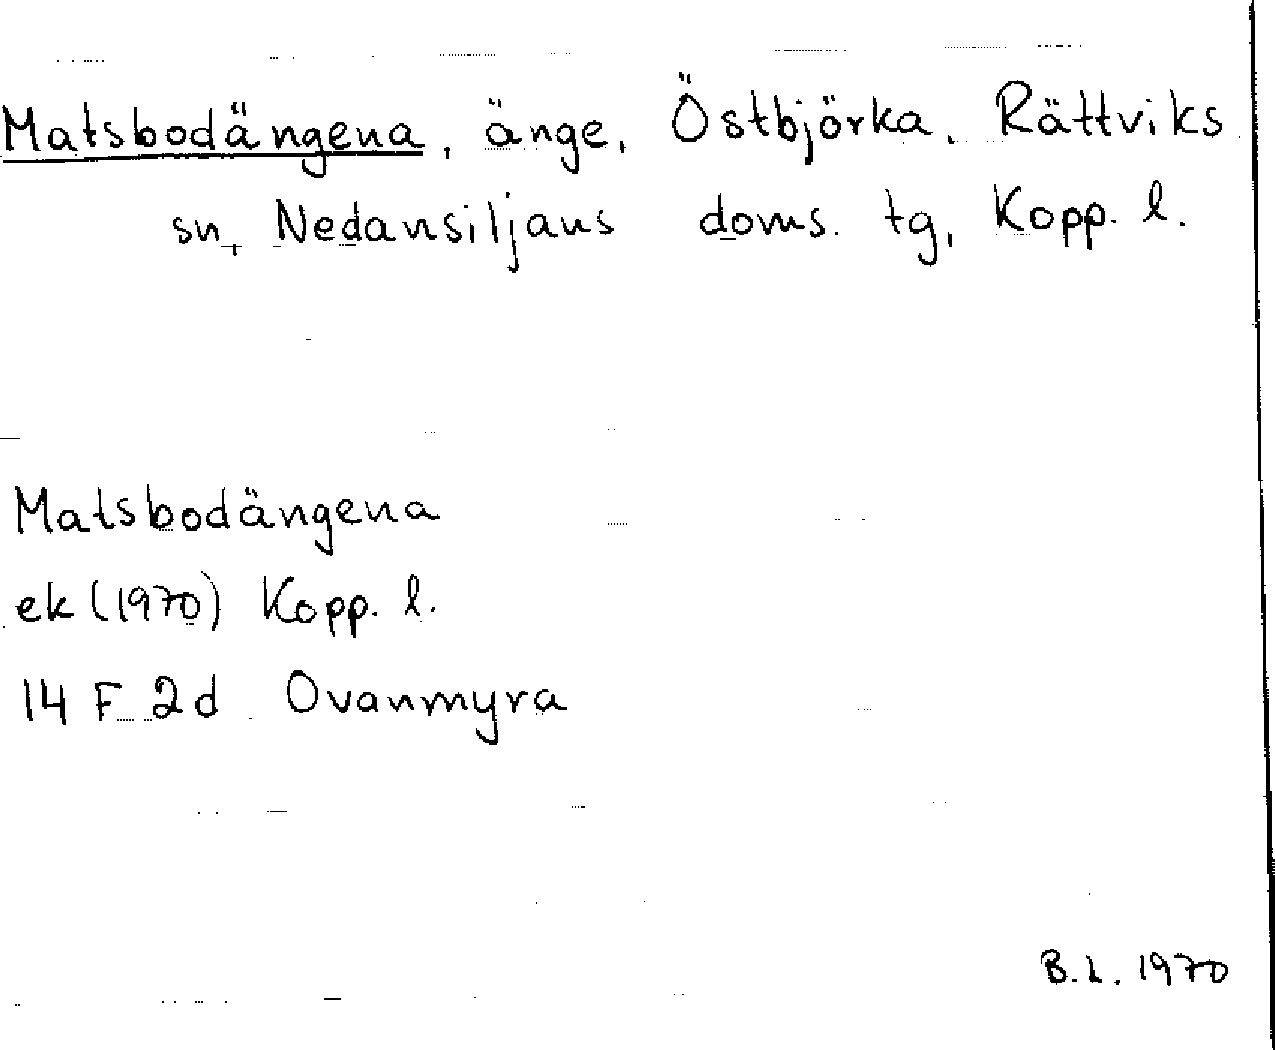 Matsbodängena, änge, Östbjörka, Rättviks
sn, Nedansiljans doms. tg, Kopp. l.
Matsbodängena
ek (1970) Kopp. l.
14 F 2d Ovanmyra
B.L. 1970